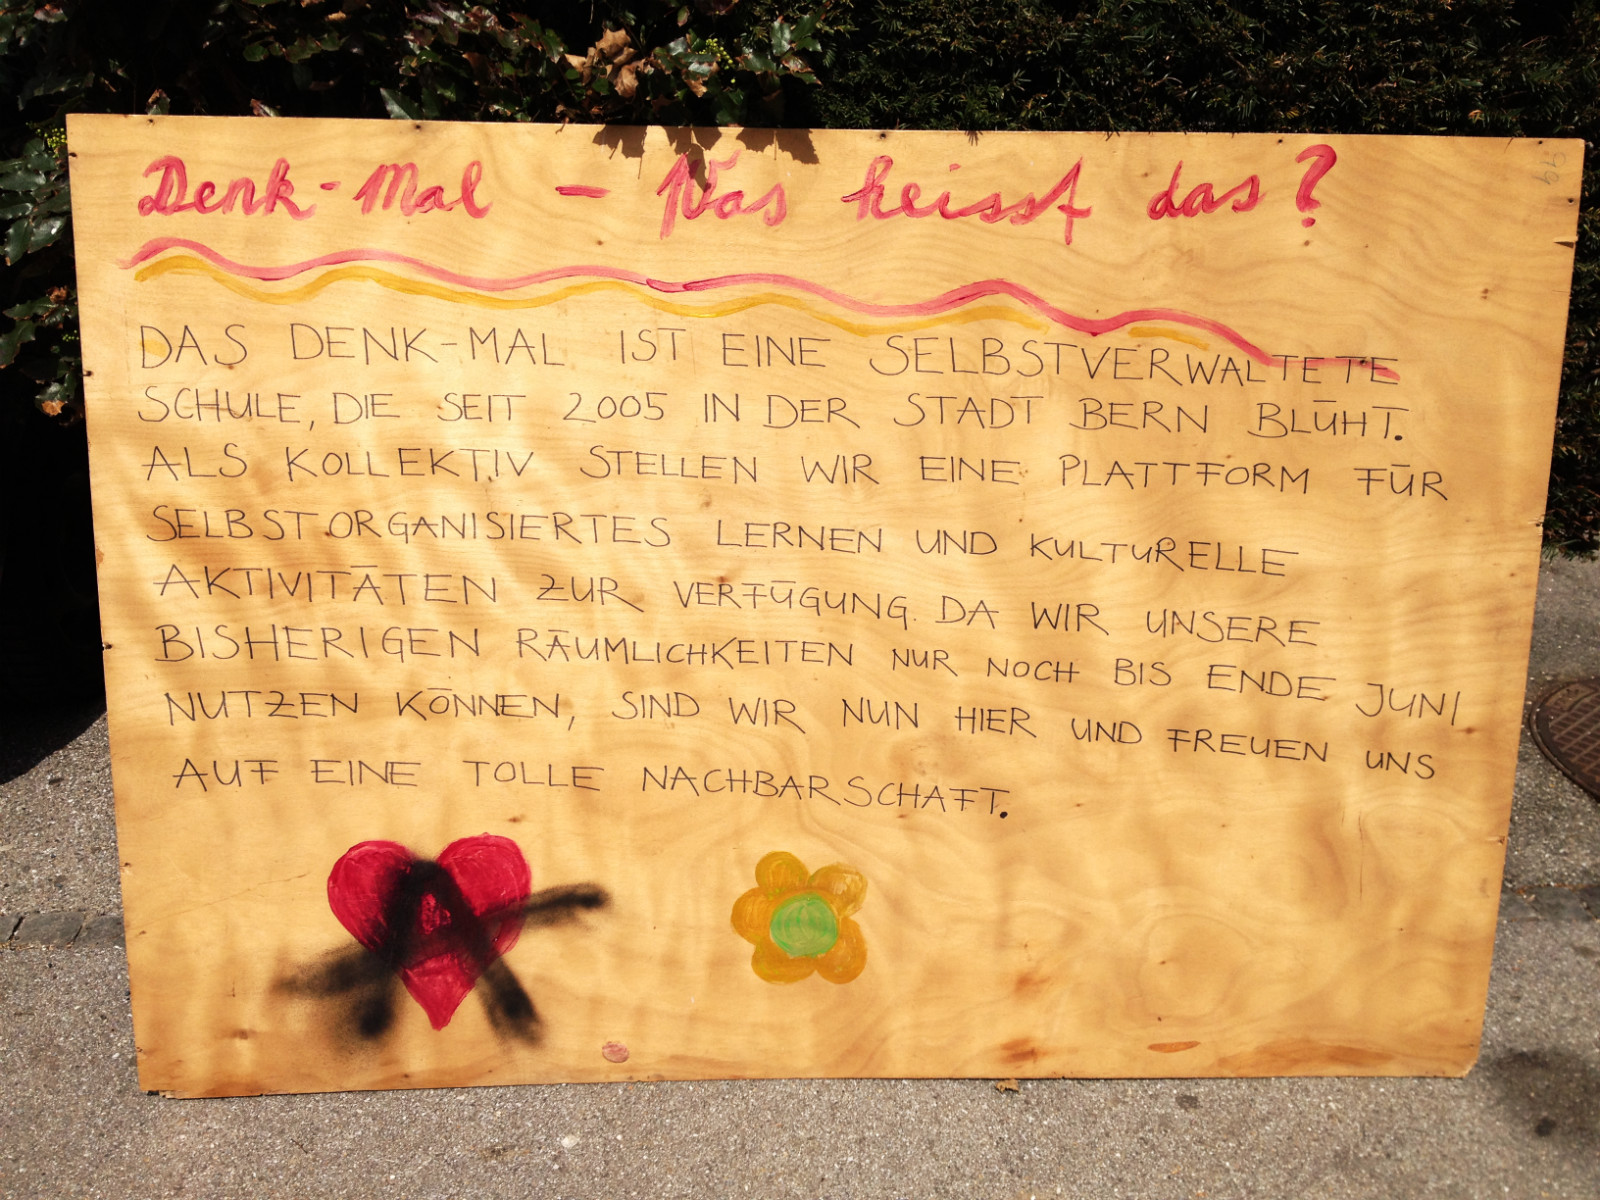 Denk-Mal - Was heisst das?
DAS DENK-MAL IST EINE SELBSTVERWALTETE
SCHULE, DIE SEIT 2005 IN DER STADT BERN BLÜHT.
ALS KOLLEKTIV STELLEN WIR EINE PLATTFORM FÜR
SELBSTORGANISIERTES LERNEN UND KULTURELLE
AKTIVITÄTEN ZUR VERFÜGUNG. DA WIR UNSERE
BISHERIGEN RÄUMLICHKEITEN NUR NOCH BIS ENDE JUNI
NUTZEN KÖNNEN, SIND WIR NUN HIER UND FREUEN UNS
AUF EINE TOLLE NACHBARSCHAFT.